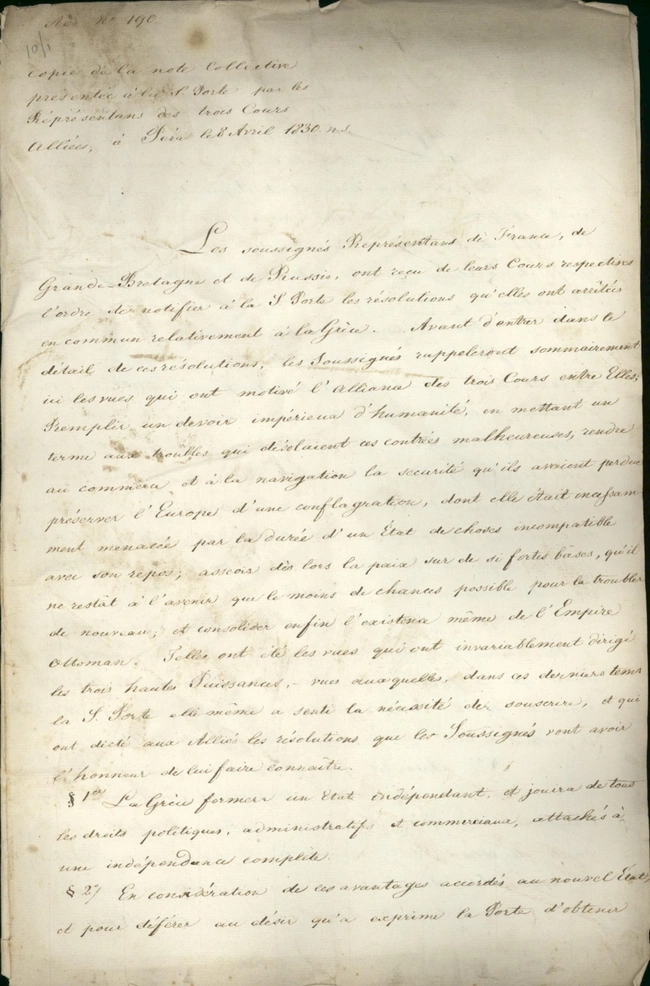 Ad N° 190.
10/1
Copie de la note Collective
présentée à la S. Porte par les
Réprésentans des trois Cours
Alliées, à Péra le 8 Avril 1830. n.s.
Les soussignés Réprésentans de France, de
Grande-Bretagne et de Russie, ont reçu de leurs Cours respectives
l'ordre de notifier à la S. Porte les résolutions qu'elles ont arrêtées
en commun relativement à la Grèce. Avant d'entrer dans le
détail de ces résolutions, les Soussignés rappeleront sommairement
ici les vues qui ont motivé l'Alliance des trois Cours entre Elles;
Remplir un devoir impérieux d'humanité, en mettant un
terme aux troubles qui désolaient ces contrées malheureuses, rendre
au commerce et à la navigation la securité qu'ils avaient perdue
préserver l'Europe d'une conflagration, dont elle était incessam
ment menacée par la durée d'un Etat de choses incompatible
avec son repos; asseoir dès lors la paix sur de si fortes bases, qu'il
ne restât à l'avenir que le moins de chances possible pour la troubler
de nouveau; et consolider enfin l'existence même de l'Empire
Ottoman. Telles ont été les vues qui ont invariablement dirigé
les trois hautes Puissances, – vues auxquelles, dans ces derniers tems
la S. Porte elle même a senti la nécessité de souscrire, et qui
ont dicté aux Alliés les résolutions que les Soussignés vont avoir
l'honneur de lui faire connaître.
§ 1er La Grèce formera un Etat indépendant, et jouira de tous
les droits politiques, administratifs et commerciaux, attachés à
une indépendance complète.
§ 2) En considération de ces avantages accordés au nouvel Etat,
et pour déférer au désir qu'a exprimé la Porte d'obtenir